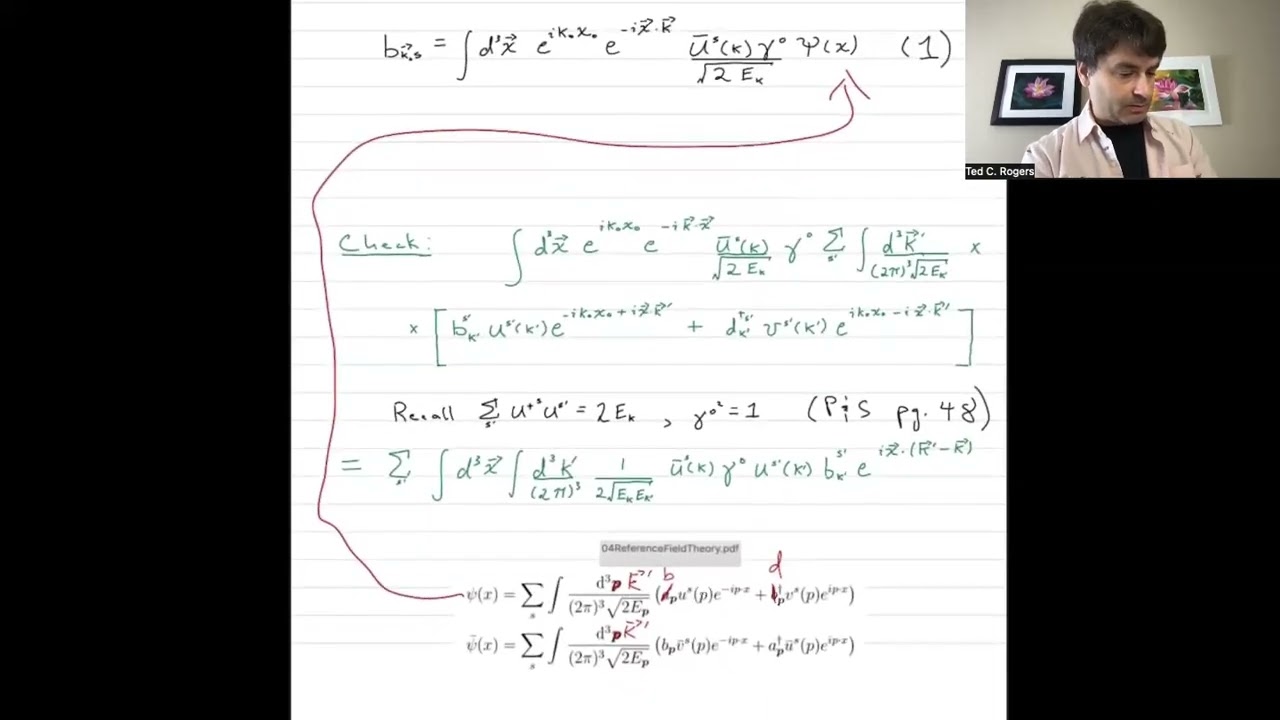 b_{k⃗,s} = ∫ d³x⃗ e^{ik₀x₀} e^{-ix⃗·k⃗} ū^s(k) γ⁰ ψ(x) / √(2E_k) (1)
Ted C. Rogers
Check: ∫ d³x⃗ e^{ik₀x₀} e^{-ik⃗·x⃗} ū^s(k)/√(2E_k) γ⁰ Σ_{s'} ∫ d³k⃗'/((2π)³√(2E_k')) ×
× [ b_{k'}^{s'} u^{s'}(k') e^{-ik₀x₀+ix⃗·k⃗'} + d_{k'}^{†s'} v^{s'}(k') e^{ik₀x₀-ix⃗·k⃗'} ]
Recall Σ_{s'} u^{+s} u^{s'} = 2E_k , γ⁰² = 1 (P&S pg. 48)
= Σ_{s'} ∫ d³x⃗ ∫ d³k'/(2π)³ 1/(2√(E_k E_k')) ū^s(k) γ⁰ u^{s'}(k) b_{k'}^{s'} e^{ix⃗·(k⃗'-k⃗)}
04ReferenceFieldTheory.pdf
b d
ψ(x) = Σ_s ∫ d³p k⃗'/((2π)³√(2E_p)) (a_p u^s(p)e^{-ip·x} + b_p^† v^s(p)e^{ip·x})
ψ̄(x) = Σ_s ∫ d³p k⃗'/((2π)³√(2E_p)) (b_p v̄^s(p)e^{-ip·x} + a_p^† ū^s(p)e^{ip·x})